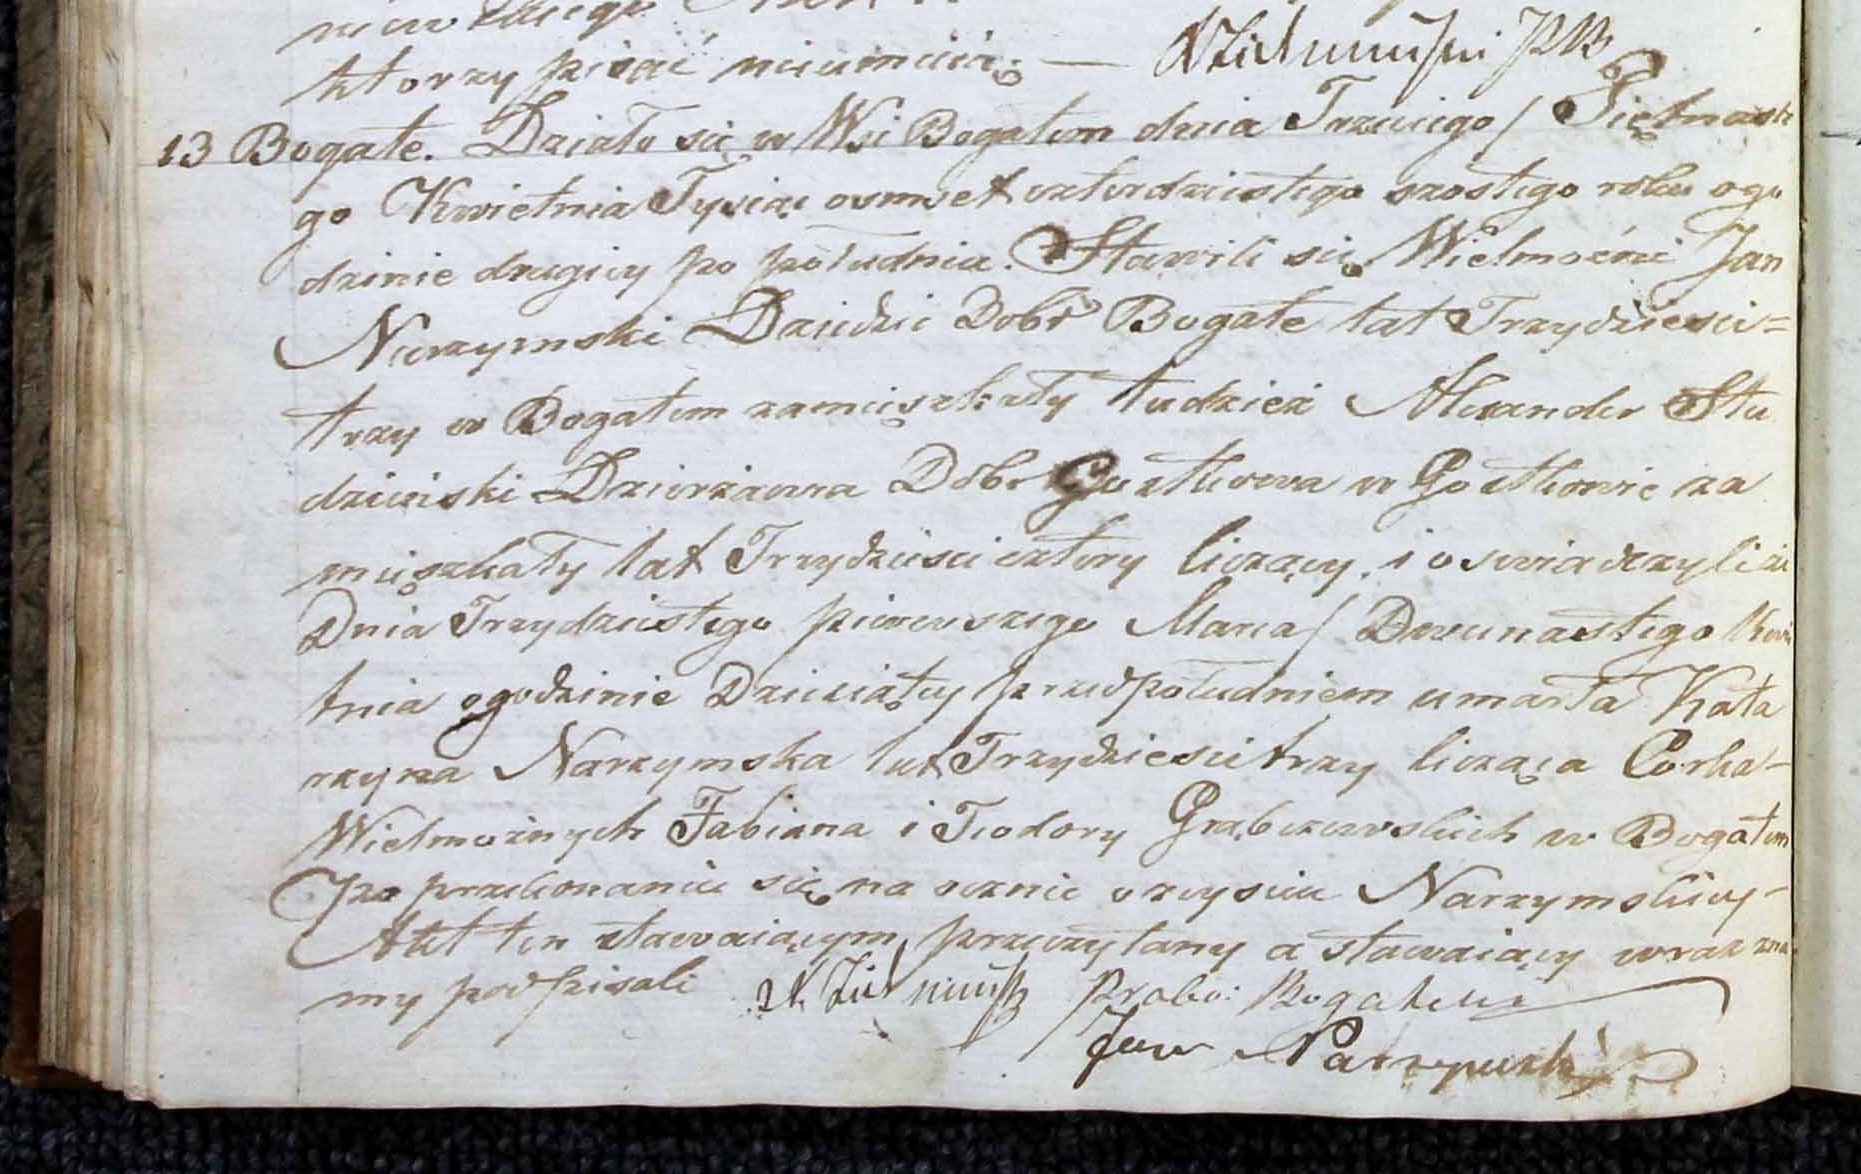 którzy pisać nieumieią. —
13 Bogate. Działo się w Wsi Bogatem dnia Trzeciego / Piętnaste
go Kwietnia Tysiąc osmset czterdziestego szostego roku ogo
dzinie drugiey po południu. Stawili się Wielmożni Jan
Narzymski Dziedzic Dobr Bogate lat Trzydziesci=
trzy w Bogatem zamięszkały tudzież Alexander Stu
dzinski Dzierżawca Dobr w zą
mięszkały lat Trzydziesci cztery liczący, i oswiadczyli że
Dnia Trzydziestego pierwszego Marca / Dwunastego Kwie
tnia ogodzinie Dziesiątey przedpołudniem umarła Kata
rzyna Narzymska lat Trzydziesci trzy licząca Corka-
Wielmożnych Fabiana i Teodory w Bogatem
Po przekonaniu się na ocznie ozeysciu Narzymskiey-
Akt ten stawaiącym przeczytany a stawaiący wraz zna
my podpisali Probo: Bogatem
Jan Narzymski